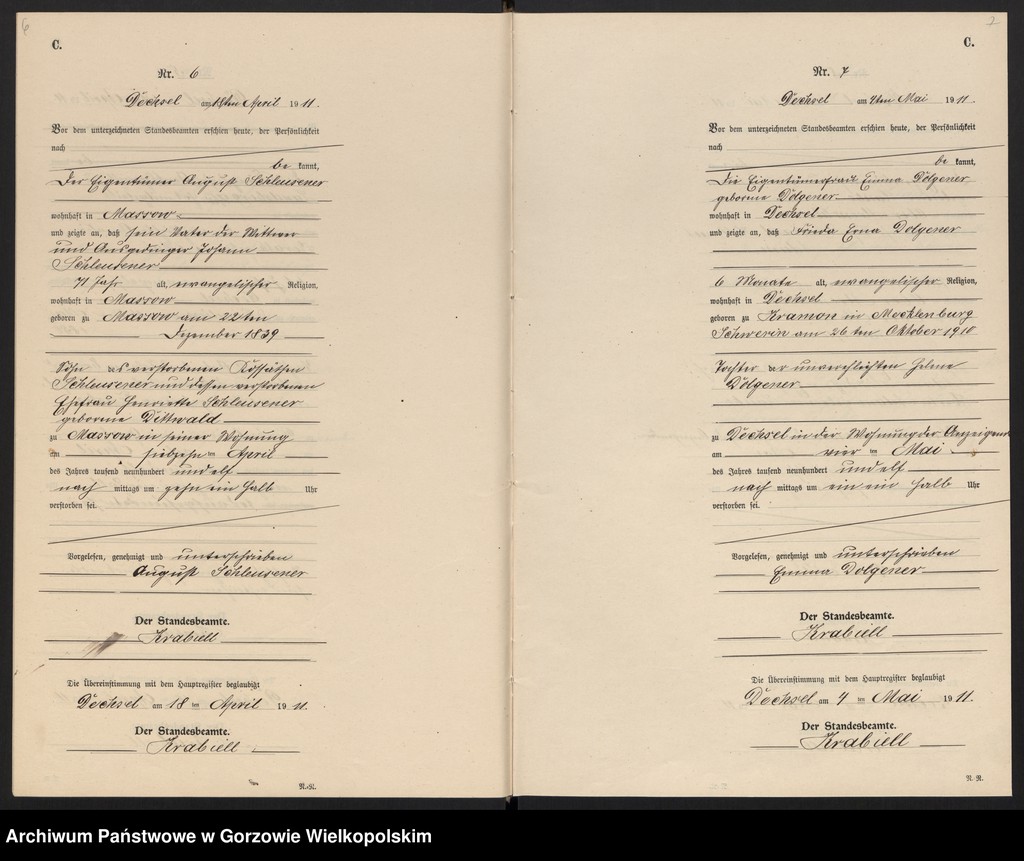 6
C.
Nr. 6
Dechsel am 18ten April 1911.
Vor dem unterzeichneten Standesbeamten erschien heute, der Persönlichkeit
nach
be kannt,
Der Eigentümer August Schleusener
wohnhaft in Massow
und zeigte an, daß sein Vater der Wittwer
und Ausgedinger Johann
Schleusener
71 Jahr alt, evangelischer Religion,
wohnhaft in Massow
geboren zu Massow am 22ten
Dezember 1839
Sohn des verstorbenen Kossäthen
Schleusener und dessen verstorbenen
Ehefrau Henriette Schleusener
geborene Dittwald
zu Massow in seiner Wohnung
am siebzehnten April
des Jahres tausend neunhundert und elf
nach mittags um zehn ein halb Uhr
verstorben sei.
Vorgelesen, genehmigt und unterschrieben
August Schleusener
Der Standesbeamte.
Krabiell
Die Übereinstimmung mit dem Hauptregister beglaubigt
Dechsel am 18 ten April 1911.
Der Standesbeamte.
Krabiell
N.-N.
C.
Nr. 7
Dechsel am 4ten Mai 1911.
Vor dem unterzeichneten Standesbeamten erschien heute, der Persönlichkeit
nach
be kannt,
Die Eigentümerfrau Emma Dolgener
geborene Dolgener
wohnhaft in Dechsel
und zeigte an, daß Frieda Erna Dolgener
6 Monate alt, evangelischer Religion,
wohnhaft in Dechsel
geboren zu Kramon in Mecklenburg
Schwerin am 26 ten Oktober 1910
Tochter der unverehlichten Helene
Dolgener
zu Dechsel in der Wohnung der Anzeigende
am vier ten Mai
des Jahres tausend neunhundert und elf
nach mittags um ein ein halb Uhr
verstorben sei.
Vorgelesen, genehmigt und unterschrieben
Emma Dolgener
Der Standesbeamte.
Krabiell
Die Übereinstimmung mit dem Hauptregister beglaubigt
Dechsel am 4 ten Mai 1911.
Der Standesbeamte.
Krabiell
N.-N.
Archiwum Państwowe w Gorzowie Wielkopolskim